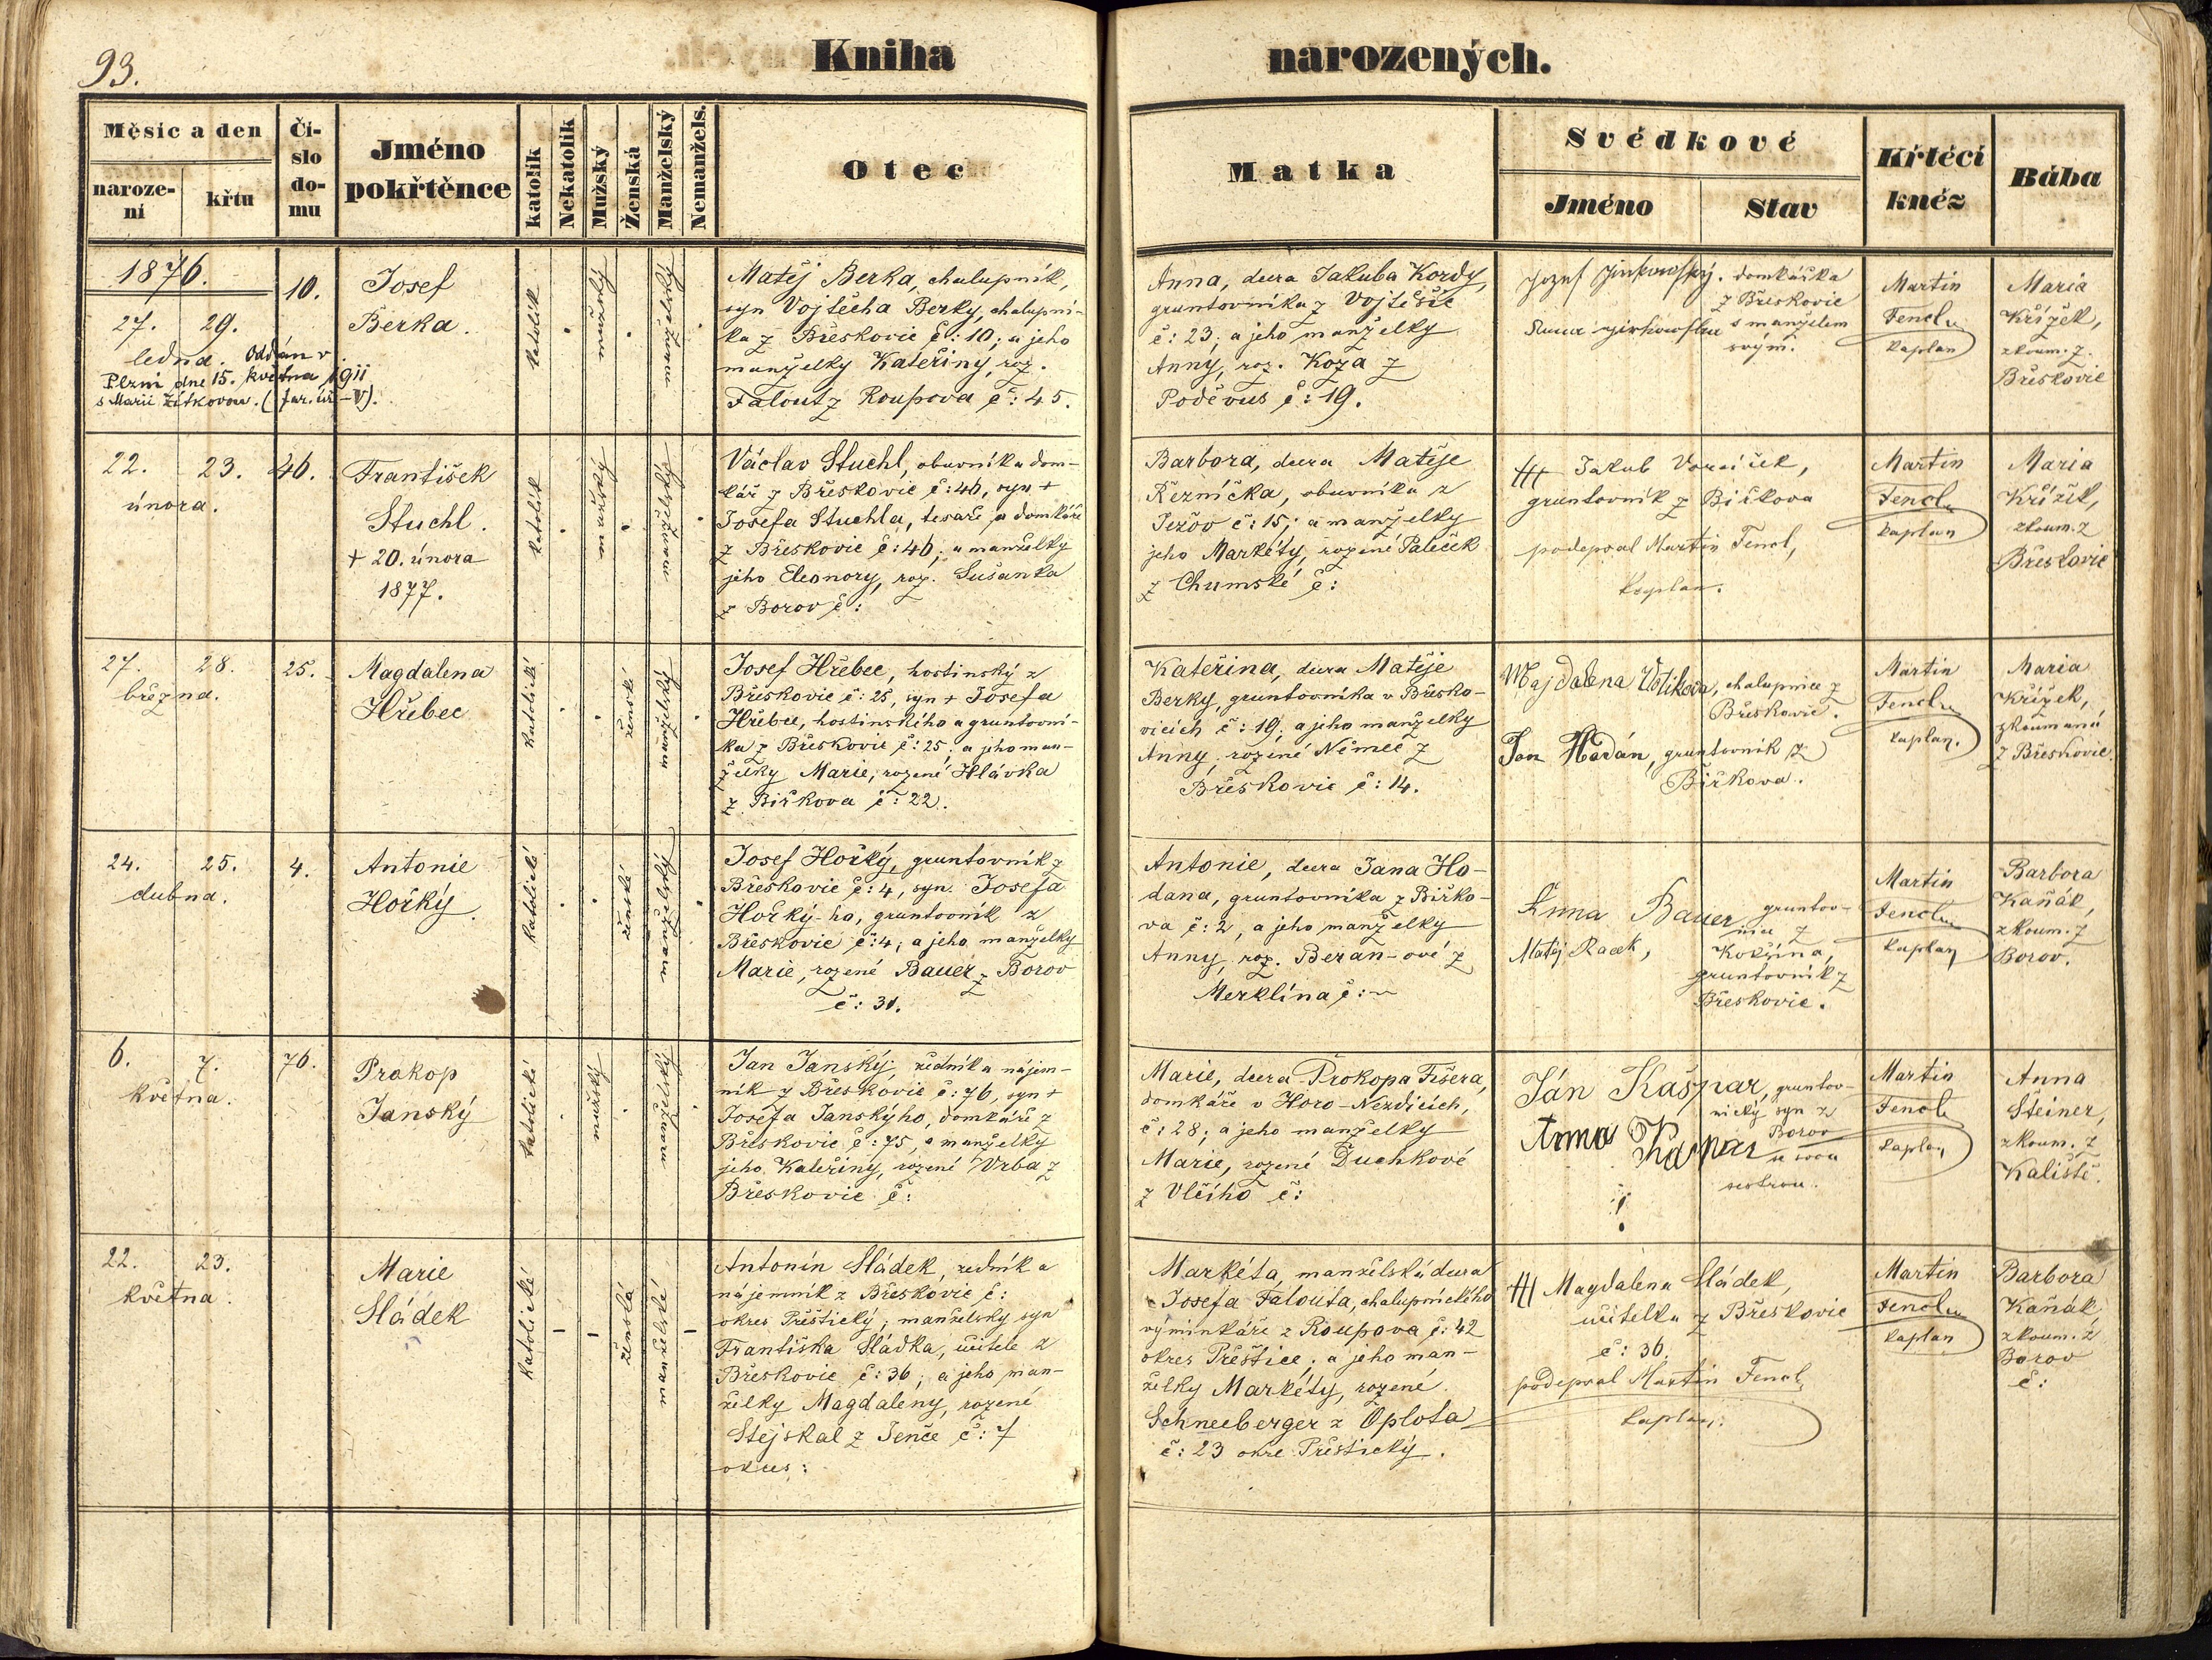 93.
Kniha narozených.
Měsíc a den
naroze-
ní
křtu
Čí-
slo
do-
mu
Jméno
pokřtěnce
katolík
Nekatolík
Mužský
Ženská
Manželský
Nemanžels.
Otec
Matka
Svědkové
Jméno
Stav
Křtící
kněz
Bába
1876.
27. 29.
ledna. Oddán v
Plzni dne 15. května 1911
s Marií Žítkovou. (far. úř. - V).
10.
Josef
Berka.
katolík
mužský
manželský
Matěj Berka, chalupník,
syn Vojtěcha Berky, chalupní-
ka z Břeskovic č: 10; a jeho
manželky Kateřiny, roz.
Falout z Roupova č: 45.
Anna, dcera Jakuba Kordy,
gruntovníka z Vojtěšic
č: 23; a jeho manželky
Anny, roz. Koza z
Poděvus č: 19.
domkářka
z Břeskovic
s manželem
svým.
Martin
Fencl
kaplan
Maria
Křížek,
zkoum. z
Břeskovic
22. 23.
února.
46.
František
Stuchl.
+ 20. února
1877.
katolík
mužský
manželský
Václav Stuchl, obuvník a dom-
kář z Břeskovic č: 46, syn +
Josefa Stuchla, tesaře a domkáře
z Břeskovic č: 46; a manželky
jeho Eleonory, roz. Sušanka
z Borov č:
Barbora, dcera Matěje
Řezníčka, obuvníka z
Ježov č: 15; a manželky
jeho Markéty, rozené Paleček
z Chumské č:
+++ Jakub Voráček,
gruntovník z Biřkova
podepsal Martin Fencl,
kaplan.
Martin
Fencl
kaplan
Maria
Křížek,
zkoum. z
Břeskovic
27. 28.
března.
25.
Magdalena
Hřebec
katolické
ženské
manželský
Josef Hřebec, hostinský z
Břeskovic č: 25, syn + Josefa
Hřebec, hostinského a gruntovní-
ka z Břeskovic č: 25; a jeho man-
želky Marie, rozené Hlávka
z Biřkova č: 22.
Kateřina, dcera Matěje
Berky, gruntovníka v Břesko-
vicích č: 19; a jeho manželky
Anny, rozené Němec z
Břeskovic č: 14.
Majdalena, chalupnice z
Břeskovic.
Jan Hodán, gruntovník z
Biřkova.
Martin
Fencl
kaplan.
Maria
Křížek,
zkoumaná
z Břeskovic.
24. 25.
dubna.
4.
Antonie
Hořký.
katolické
ženské
manželský
Josef Hořký, gruntovník z
Břeskovic č: 4, syn Josefa
Hořký-ho, gruntovník z
Břeskovic č: 4; a jeho manželky
Marie, rozené Bauer z Borov
č: 31.
Antonie, dcera Jana Ho-
dana, gruntovníka z Biřko-
va č: 2, a jeho manželky
Anny, roz. Beran-ové z
Merklína č: ~
Anna Bauer gruntov-
nice z
Matěj Racek, Kokšína,
gruntovník z
Břeskovic.
Martin
Fencl
kaplan
Barbora
Kaňák,
zkoum. z
Borov.
6. 7.
května.
76.
Prokop
Janský
katolické
mužský
manželský
Jan Janský, zedník a nájem-
ník z Břeskovic č: 76, syn +
Josefa Janskýho, domkáře z
Břeskovic č: 75, a manželky
jeho Kateřiny, rozené Vrba z
Břeskovic č:
Marie, dcera Prokopa Fišera,
domkáře v Horo-Nezdicích,
č: 28; a jeho manželky
Marie, rozené Duchkové
z Vlčího č:
Ján Kašpar, gruntov-
nický syn z
Borov
Anna Kašpar se svou
sestrou.
!
Martin
Fencl
kaplan
Anna
Steiner,
zkoum. z
Kaliště.
22. 23.
května.
Marie
Sládek
katolické
ženská
manželské
Antonín Sládek, zedník a
nájemník z Břeskovic č:
okres Přeštický; manželský syn
Františka Sládka, učitele z
Břeskovic č: 36; a jeho man-
želky Magdaleny, rozené
Stejskal z Jenče č: 7
okres:
Markéta, manželská dcera
Josefa Falouta, chalupnického
vyminkáře z Roupova č: 42
okres Přeštice; a jeho man-
želky Markéty, rozené
Schneeberger z Oplota
č: 23 okre. Přeštický.
+++ Magdalena Sládek,
učitelka z Břeskovic
č: 36.
podepsal Martin Fencl,
kaplan.
Martin
Fencl
kaplan
Barbora
Kaňák
zkoum. z
Borov
č: